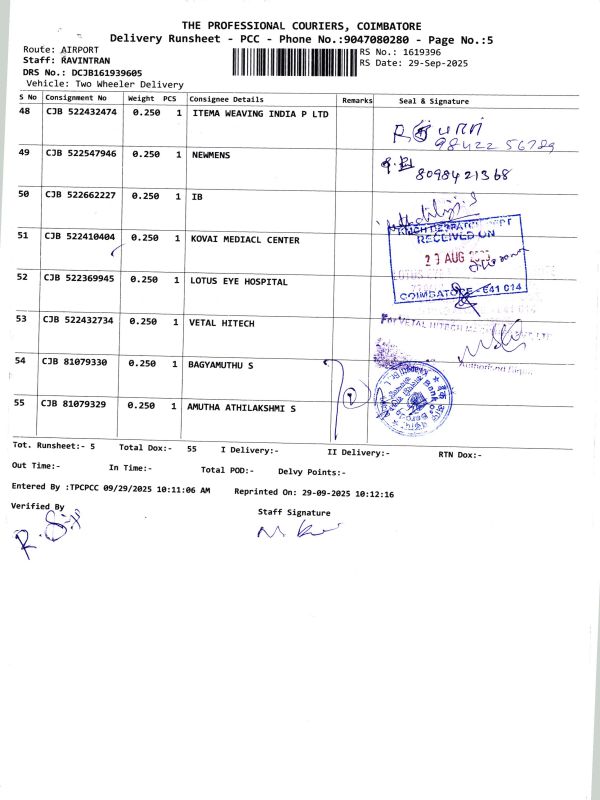 THE PROFESSIONAL COURIERS, COIMBATORE
Delivery Runsheet - PCC - Phone No.:9047080280 - Page No.:5
Route: AIRPORT
RS No.: 1619396
Staff: RAVINTRAN
RS Date: 29-Sep-2025
DRS No.: DCJB161939605
Vehicle: Two Wheeler Delivery
S No Consignment No Weight PCS Consignee Details Remarks Seal & Signature
48 CJB 522432474 0.250 1 ITEMA WEAVING INDIA P LTD
98422 56789
49 CJB 522547946 0.250 1 NEWMENS
8098421368
50 CJB 522662227 0.250 1 IB
51 CJB 522410404 0.250 1 KOVAI MEDIACL CENTER
RECEIVED ON
27 AUG
COIMBATORE - 641 014
52 CJB 522369945 0.250 1 LOTUS EYE HOSPITAL
53 CJB 522432734 0.250 1 VETAL HITECH
For VETAL HITECH
54 CJB 81079330 0.250 1 BAGYAMUTHU S
55 CJB 81079329 0.250 1 AMUTHA ATHILAKSHMI S
Bank of Baroda
Tot. Runsheet:- 5 Total Dox:- 55 I Delivery:- II Delivery:- RTN Dox:-
Out Time:- In Time:- Total POD:- Delvy Points:-
Entered By :TPCPCC 09/29/2025 10:11:06 AM Reprinted On: 29-09-2025 10:12:16
Verified By Staff Signature